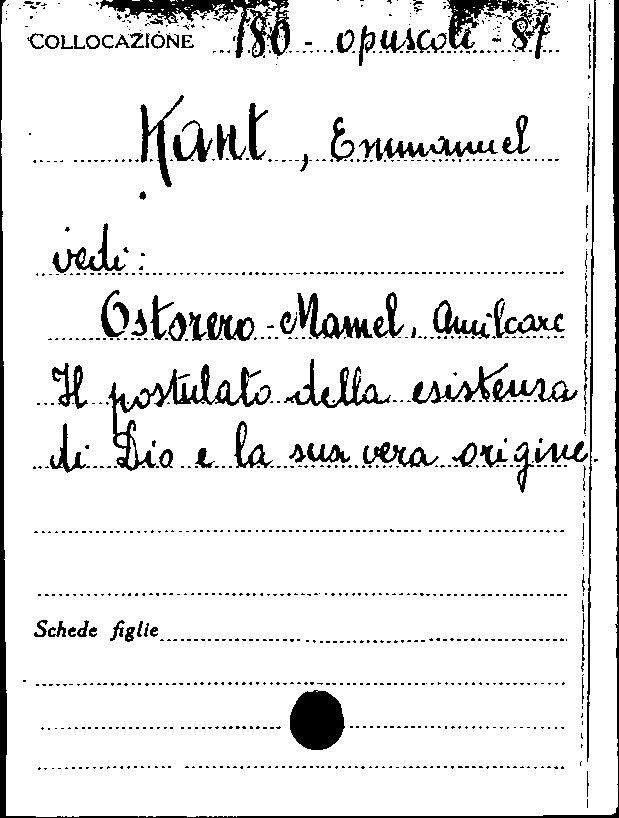 COLLOCAZIONE 180 - opuscoli - 87
Kant, Emmanuel
vedi:
Ostorero-Mamel, Amilcare
Il postulato della esistenza
di Dio e la sua vera origine.
Schede figlie